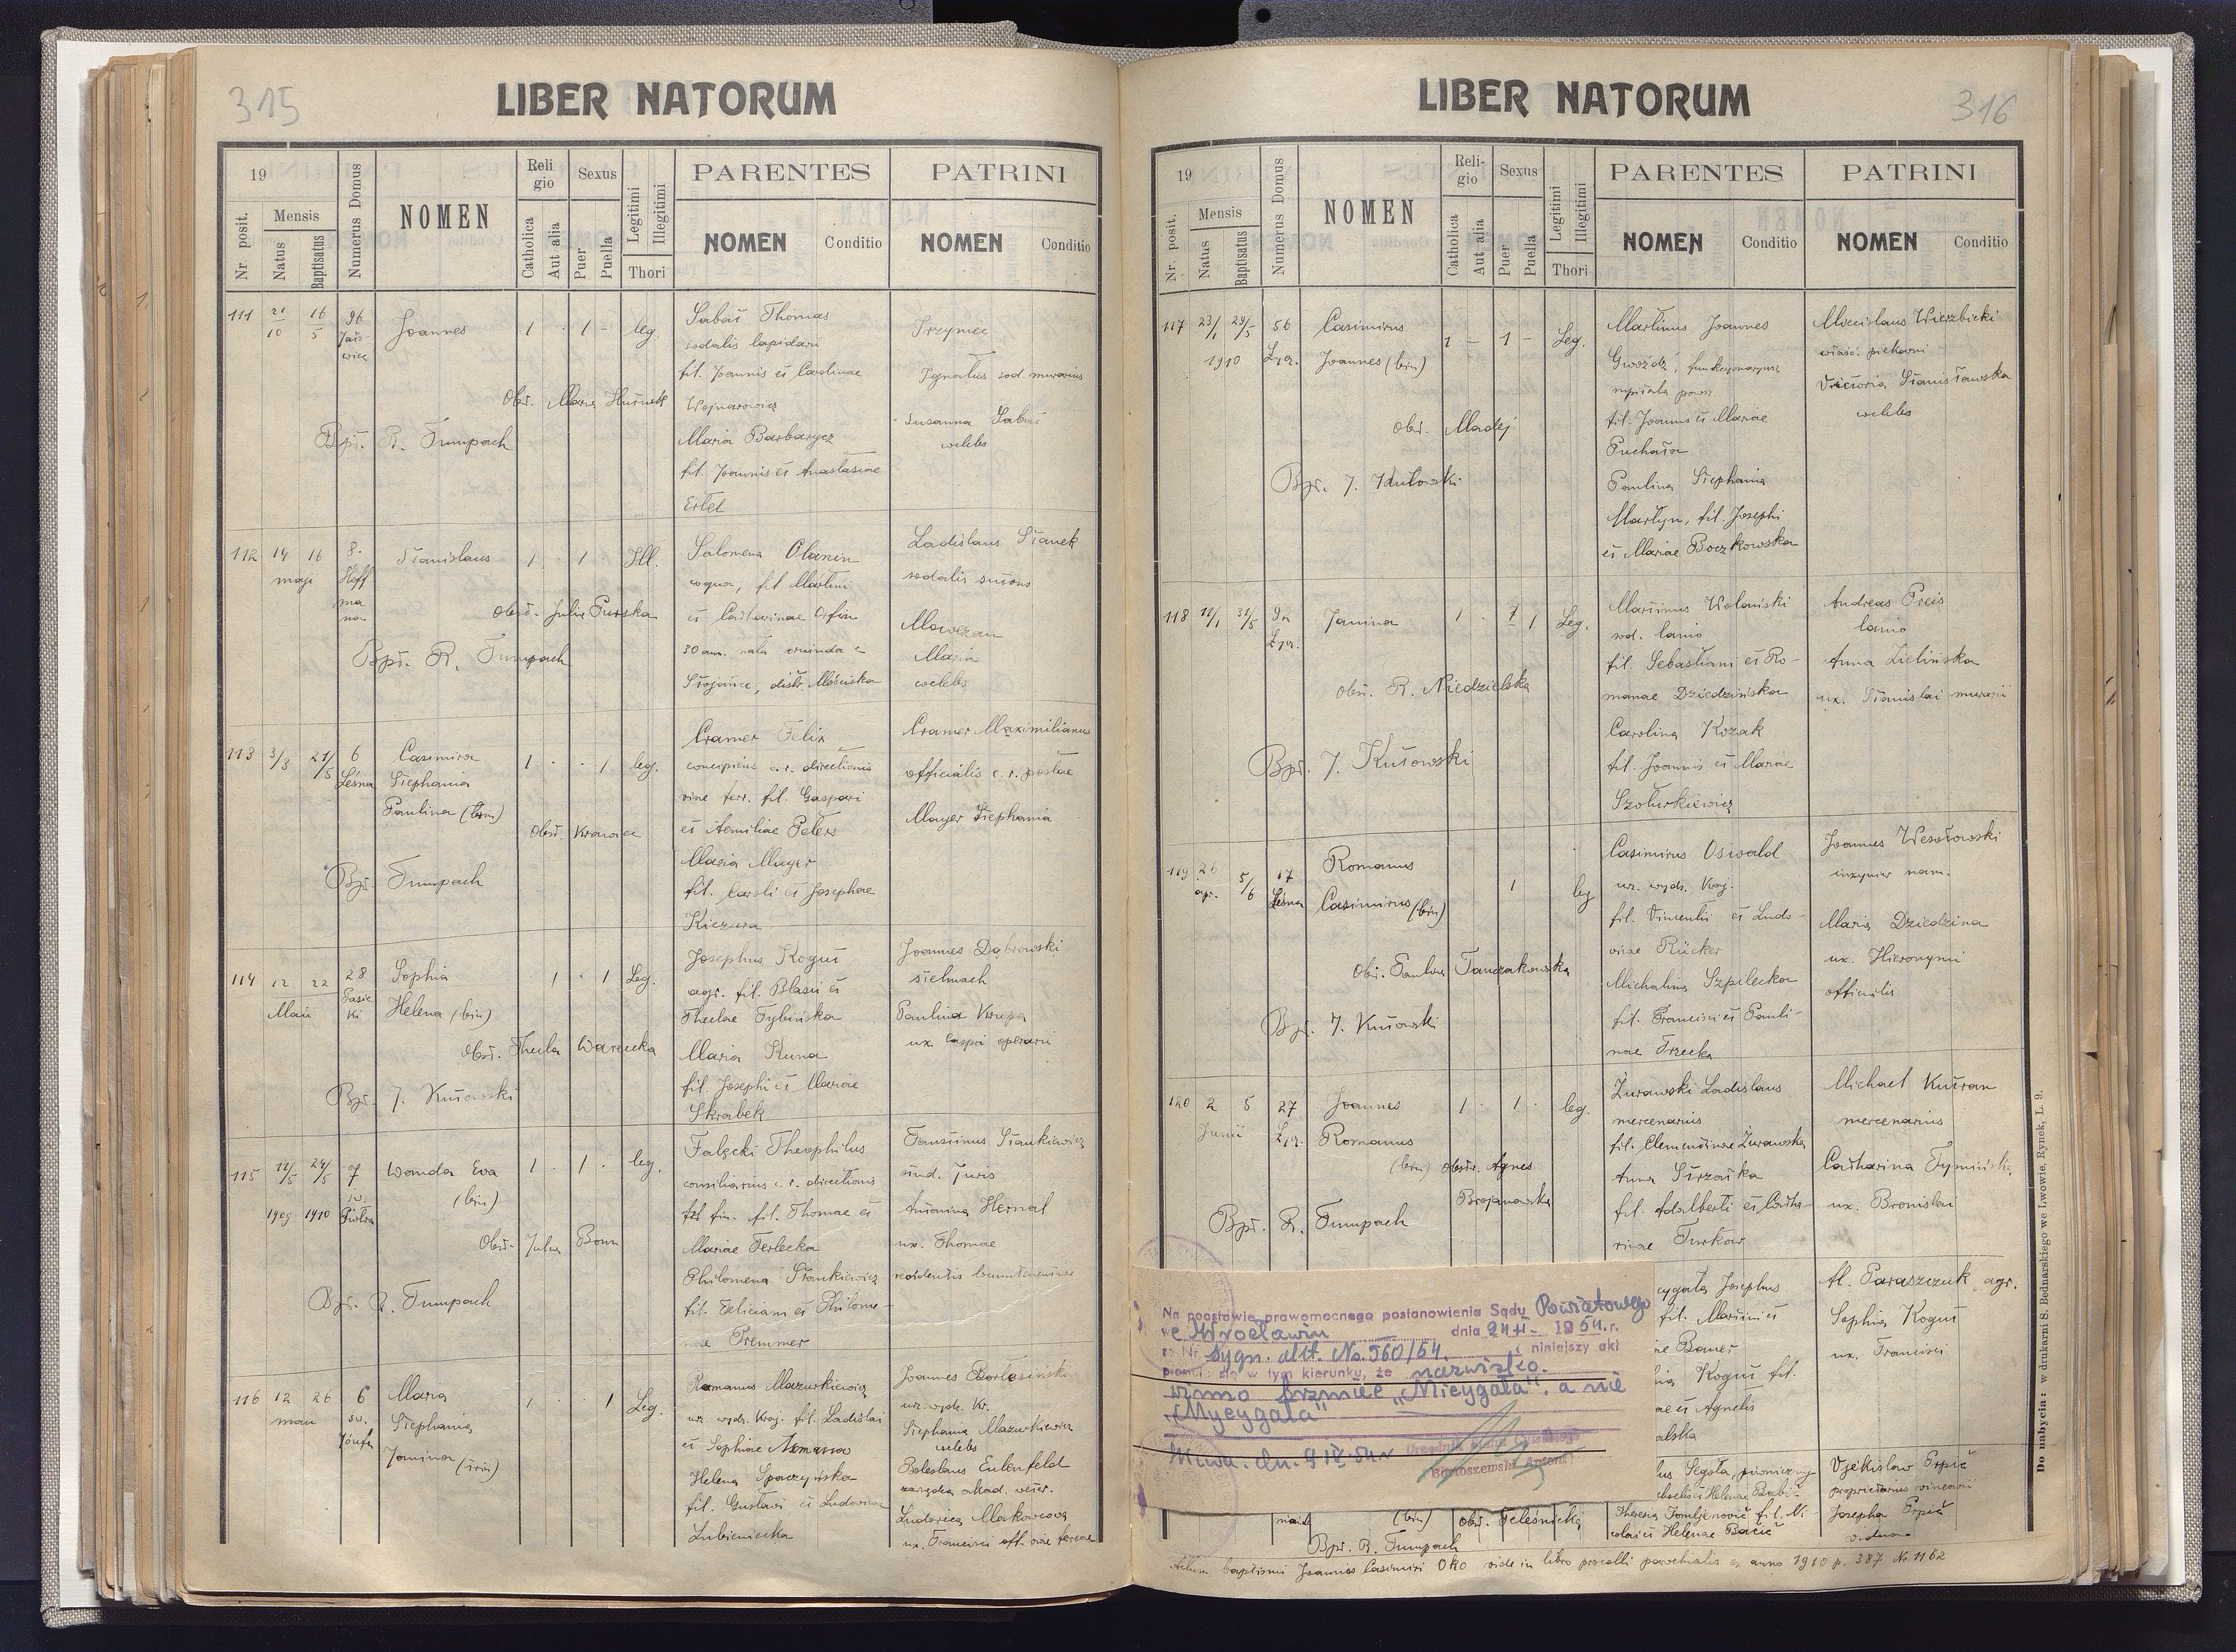 315
LIBER NATORUM
19
Nr posit.
Mensis
Natus
Baptisatus
Numerus Domus
NOMEN
Religio
Catholica
Aut alia
Sexus
Puer
Puella
Legitimi
Illegitimi
Thori
PARENTES
NOMEN
Conditio
PATRINI
NOMEN
Conditio
111 21/10 16/5 96 Joannes 1 · 1 - leg.
Obst. Maria
Bpt. R. Tumpach
Thomas
sodalis lapidarii
fil. Joannis et Carolinae
Wojnarowicz
Maria Barbarycz
fil. Joannis et Anastasiae
Ertel
Ignatius sod. murarius
Susanna
coelebs
112 14 16 maji 8. Hoffmana Stanislaus 1 · 1 Ill.
Obst. Julia
Bpt. R. Tumpach
Salomena
coqua, fil. Martini
et Catharinae
30 ann. nata oriunda e
Stojańce, distr. Mościska
Ladislaus Stanek
sodalis
Maria
coelebs
113 3/3 21/5 6 Leśna Casimira 1 · · 1 leg.
Stephania
Paulina (trin)
Obst.
Bpt. Tumpach
Cramer Felix
concipista c. r. directionis
viae ferr. fil. Gaspari
et Aemiliae Peters
Maria Mayer
fil. Caroli et Josephae
Cramer Maximilianus
officialis c. r. postae
Mayer Stephania
114 12 22 Maii 28 Sophia 1 · 1 Leg.
Helena (bin)
Obst. Thecla Warecka
Bpt. J. Kutowski
Josephus Kogut
agr. fil. Blasii et
Theclae Tybińska
Maria Kuna
fil. Josephi et Mariae
Skrabek
Joannes Dąbrowski
stelmach
Paulina Krupa
ux. Caspri operarii
115 12/5 1909 24/5 1910 7 św. Piotra Wanda Eva 1 · 1 · leg.
(bin)
Obst. Julia Bonn
Bpt. R. Tumpach
Falęcki Theophilus
consiliarius c. r. directionis
fin. fil. Thomae et
Mariae Terlecka
Philomena Stankiewicz
fil. Feliciani et Philomenae
Premmer
Faustinus Stankiewicz
stud. Juris
Antonina Hernal
ux. Thomae
116 12 26 maii 6 św. Józefa Maria 1 · 1 Leg.
Stephania
Janina (trin)
Romanus Mazurkiewicz
urz. wydz. Kraj. fil. Ladislai
et Sophiae
Helena Spaczyńska
fil. Gustavi et Ludovicae
Lubieniecka
Joannes
urz. wydz. Kr.
Stephania Mazurkiewicz
coelebs
Boleslaus Eulenfeld
zarządca akad. weter.
Ludovica Makowcowa
ux. Francisci off. viae ferreae
316
LIBER NATORUM
19
Nr. posit.
Mensis
Natus
Baptisatus
Numerus Domus
NOMEN
Religio
Catholica
Aut alia
Sexus
Puer
Puella
Legitimi
Illegitimi
Thori
PARENTES
NOMEN
Conditio
PATRINI
NOMEN
Conditio
117 23/1 1910 29/5 56 Łycz. Casimirus 1 - 1 - Leg.
Joannes (bin)
Obst. Madej
Bpt. J. Kutowski
Martinus Joannes
Gwoźdź, funkcyonaryusz
szpitala powsz
fil. Joannis et Mariae
Puchała
Paulina Stephania
Martyn, fil. Josephi
et Mariae Boczkowska
Miecislaus Wierzbicki
właśc. piekarni
Victoria Stanisławska
coelebs
118 12/1 31/5 9a Łycz. Janina 1 · 1 Leg.
Obst. R. Niedzielska
Bpt. J. Kutowski
Martinus Wolański
sod. lanio
fil. Sebastiani et Romanae
Dziedzińska
Carolina Kozak
fil. Joannis et Mariae
Szoturkiewicz
Andreas Preis
lanio
Anna Zielińska
ux. Stanislai murarii
119 26 apr. 5/6 17 Leśna Romanus 1 leg
Casimirus (bin)
Obst. Paulina Tanczakowska
Bpt. J. Kutowski
Casimirus Oswald
urz. wydz. Kraj.
fil. Vincentii et Ludovicae
Rücker
Michalina Szpilecka
fil. Francisci et Paulinae
Trzecka
Joannes Wesołowski
inżynier nam.
Maria Dziedzina
ux. Hieronymi
officialis
120 2 5 Junii 27 Łycz. Joannes 1 · 1 · leg.
Romanus
(bin) Obstr. Agnes
Brojanowska
Bpt. R. Tumpach
Żurawski Ladislaus
mercenarius
fil. Clementinae Żurawska
Anna
fil. Adalberti et Catharinae
Turków
Michael Kutran
mercenarius
Catharina Tymińska
ux. Bronislai
cygała Josephus
fil. Martini et
Bauer
Kogut fil.
ae et Agnetis
alska
Al. Paraszczuk agr.
Sophia Kogut
ux. Francisci
Na podstawie prawomocnego postanowienia Sądu Powiatowego
we Wrocławiu dnia 24 II 1954.r.
Nr sygn. akt. Ns. 560/54. niniejszy akt
prostuje się w tym kierunku, że nazwisko
winno brzmieć „Micygała", a nie
„Mycygała"
dn. 9 IV. 54 r Urzędnik Stanu Cywilnego
Bartoszewski Antoni
Segota,
et Helenae
Theresa Tomljenović fil. Nicolai
et Helenae Bacić
Vjekislav Prpić
proprietarius
Josepha Prpić
vidua
(bin) Obst. Teleśnicka
Bpt. R. Tumpach
Actum baptismi Joannis Casimiri Oko vide in libro parochialis ex anno 1910 p. 387 № 1162
Do nabycia: w drukarni S. Bednarskiego we Lwowie, Rynek, L. 9.